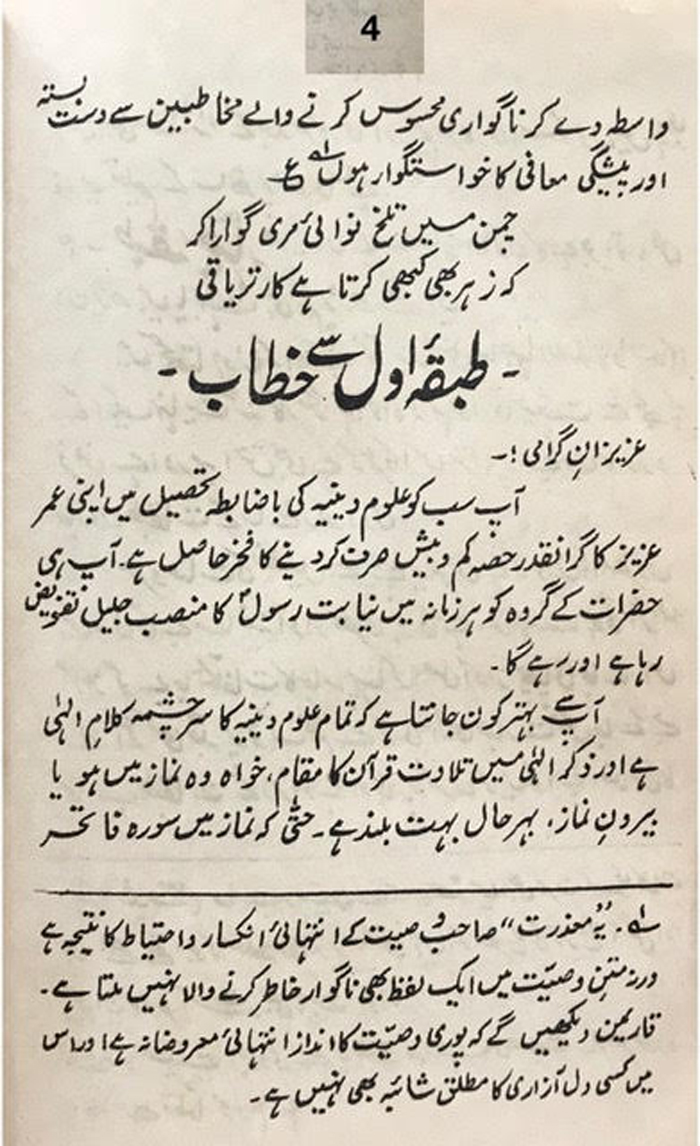 4
واسطہ دے کر ناگواری محسوس کرنے والے مخاطبین سے دست بستہ
اور پیشگی معافی کا خواستگوار ہوں لہ ع
چمن میں تلخ نوائی مری گوارا کر
کہ زہر بھی کبھی کرتا ہے کار تریاقی
- طبقۂ اول سے خطاب -
عزیزانِ گرامی !۔
آپ سب کو علوم دینیہ کی باضابطہ تحصیل میں اپنی عمر
عزیز کا گرانقدر حصّہ کم و بیش صرف کر دینے کا فخر حاصل ہے۔ آپ ہی
حضرات کے گروہ کو ہر زمانہ میں نیابت رسولؐ کا منصب جلیل تفویض
رہا ہے اور رہے گا۔
آپ سے بہتر کون جانتا ہے کہ تمام علوم دینیہ کا سرچشمہ کلامِ الہٰی
ہے اور ذکر الہٰی میں تلاوت قرآن کا مقام، خواہ وہ نماز میں ہو یا
بیرونِ نماز، بہر حال بہت بلند ہے۔ حتّٰی کہ نماز میں سورہ فاتحہ
لہ۔ یہ "معذرت" صاحب وصیت کے انتہائی انکسار و احتیاط کا نتیجہ ہے
ورنہ متنِ وصیّت میں ایک لفظ بھی ناگوار خاطر کرنے والا نہیں ملتا ہے۔
قارئین دیکھیں گے کہ پوری وصیّت کا انداز انتہائی معروضانہ ہے اور اس
میں کسی دل آزاری کا مطلق شائبہ بھی نہیں ہے۔